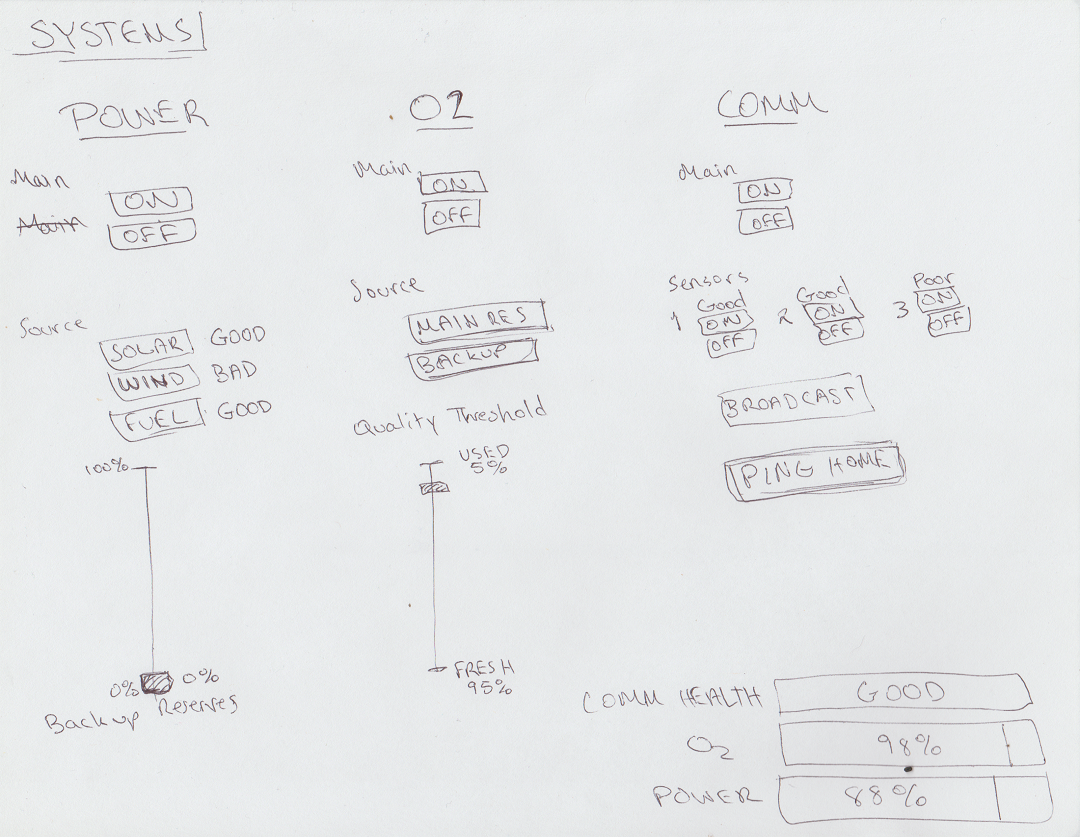 SYSTEMS
POWER
Main
ON
Main
OFF
Source
SOLAR GOOD
WIND BAD
FUEL GOOD
100%
0% 0%
Backup Reserves
O2
Main
ON
OFF
Source
MAIN RES
BACKUP
Quality Threshold
USED
5%
FRESH
95%
COMM
Main
ON
OFF
Sensors
1 Good ON OFF
2 Good ON OFF
3 Poor ON OFF
BROADCAST
PING HOME
COMM HEALTH GOOD
O2 98%
POWER 88%